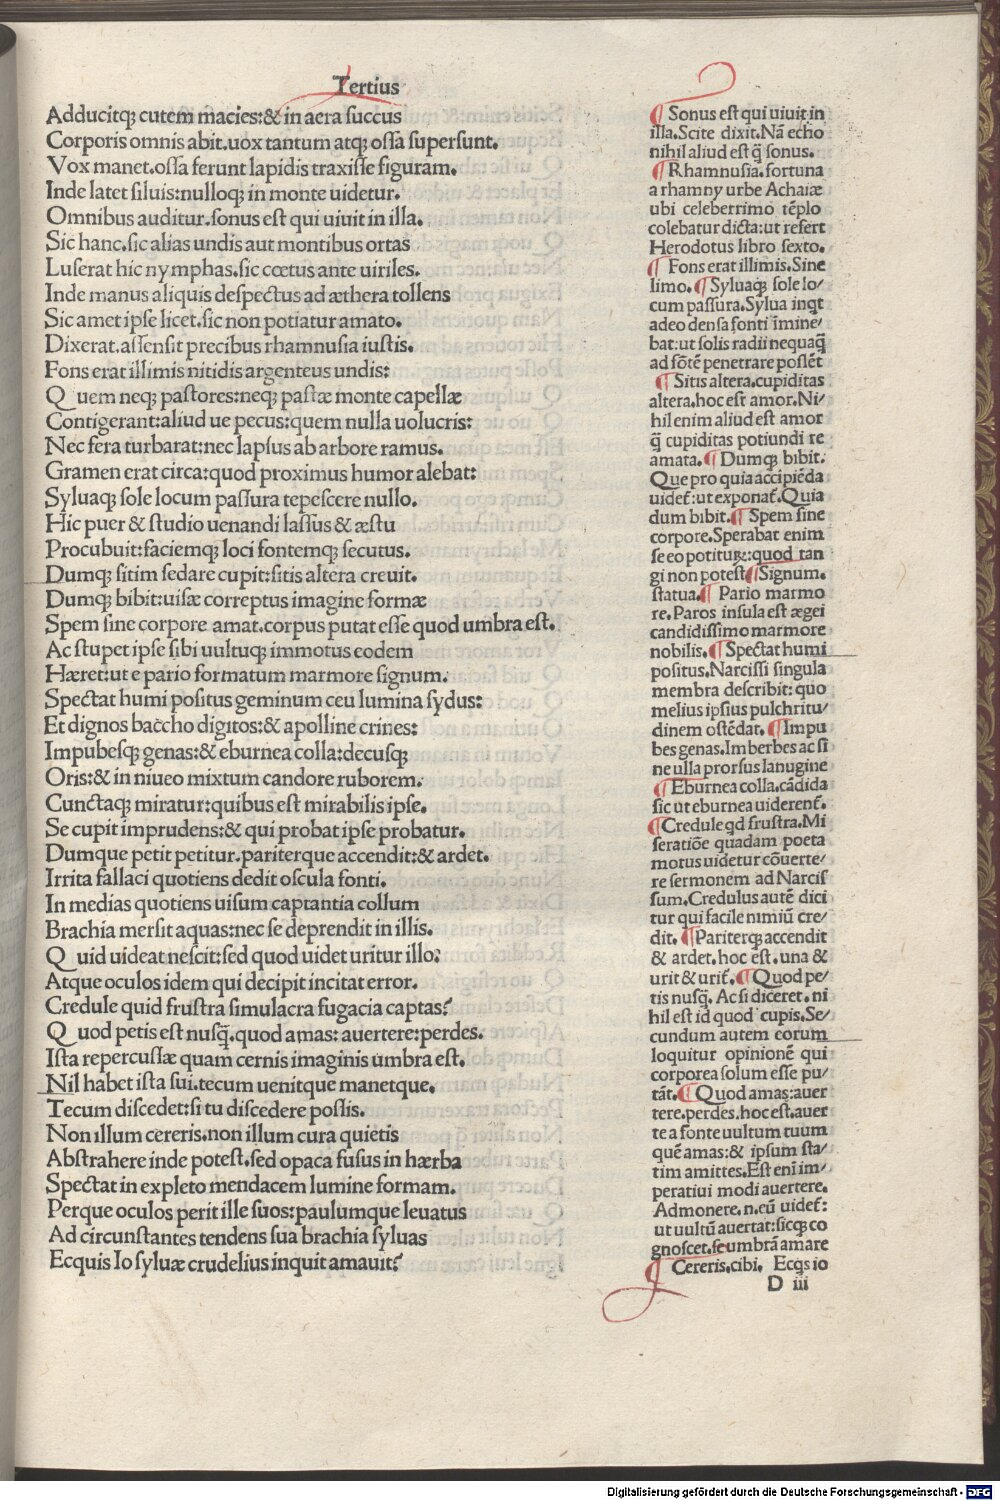 Tertius
Adducitq; cutem macies:& in aera succus
Corporis omnis abit.uox tantum atq; ossa supersunt.
Vox manet.ossa ferunt lapidis traxisse figuram.
Inde latet siluis:nulloq; in monte uidetur.
Omnibus auditur.sonus est qui uiuit in illa.
Sic hanc.sic alias undis aut montibus ortas
Luserat hic nymphas.sic cœtus ante uiriles.
Inde manus aliquis despectus ad æthera tollens
Sic amet ipse licet.sic non potiatur amato.
Dixerat.assensit precibus rhamnusia iustis.
Fons erat illimis nitidis argenteus undis:
Q uem neq; pastores:neq; pastæ monte capellæ
Contigerant:aliud ue pecus:quem nulla uolucris:
Nec fera turbarat:nec lapsus ab arbore ramus.
Gramen erat circa:quod proximus humor alebat:
Syluaq; sole locum passura tepescere nullo.
Hic puer & studio uenandi lassus & æstu
Procubuit:faciemq; loci fontemq; secutus.
Dumq; sitim sedare cupit:sitis altera creuit.
Dumq; bibit:uisæ correptus imagine formæ
Spem sine corpore amat.corpus putat esse quod umbra est.
Ac stupet ipse sibi uultuq; immotus eodem
Hæret:ut e pario formatum marmore signum.
Spectat humi positus geminum ceu lumina sydus:
Et dignos baccho digitos:& apolline crines:
Impubesq; genas:& eburnea colla:decusq;
Oris:& in niueo mixtum candore ruborem.
Cunctaq; miratur:quibus est mirabilis ipse.
Se cupit imprudens:& qui probat ipse probatur.
Dumque petit petitur.pariterque accendit:& ardet.
Irrita fallaci quotiens dedit oscula fonti.
In medias quotiens uisum captantia collum
Brachia mersit aquas:nec se deprendit in illis.
Q uid uideat nescit:sed quod uidet uritur illo:
Atque oculos idem qui decipit incitat error.
Credule quid frustra simulacra fugacia captas?
Q uod petis est nusq̃.quod amas: auertere:perdes.
Ista repercussæ quam cernis imaginis umbra est.
Nil habet ista sui.tecum uenitque manetque.
Tecum discedet:si tu discedere possis.
Non illum cereris.non illum cura quietis
Abstrahere inde potest.sed opaca fusus in hærba
Spectat in expleto mendacem lumine formam.
Perque oculos perit ille suos:paulumque leuatus
Ad circunstantes tendens sua brachia syluas
Ecquis Io syluæ crudelius inquit amauit?
¶ Sonus est qui uiuit in
illa.Scite dixit.Nã echo
nihil aliud est q̃ sonus.
¶ Rhamnusia.fortuna
a rhamny urbe Achaiæ
ubi celeberrimo tẽplo
colebatur dicta:ut refert
Herodotus libro sexto.
¶ Fons erat illimis.Sine
limo. ¶ Syluaq; sole lo/
cum passura.Sylua inqt
adeo densa fonti ĩmine/
bat:ut solis radii nequaq̃
ad fõtẽ penetrare possẽt
¶ Sitis altera.cupiditas
altera.hoc est amor.Ni/
hil enim aliud est amor
q̃ cupiditas potiundi re
amata.¶ Dumq; bibit.
Que pro quia accipiẽda
uidet̃:ut exponat̃.Quia
dum bibit.¶ Spem sine
corpore.Sperabat enim
se eo potituꝝ:quod tan
gi non potest¶Signum.
statua.¶ Pario marmo
re.Paros insula est ægei
candidissimo marmore
nobilis.¶ Spectat humi
positus.Narcissi singula
membra describit: quo
melius ipsius pulchritu/
dinem ostẽdat.¶Impu
bes genas.Imberbes ac si
ne ulla prorsus lanugine
¶Eburnea colla.cãdida
sic ut eburnea uiderent̃.
¶Credule qd frustra.Mi
seratiõe quadam poeta
motus uidetur cõuerte/
re sermonem ad Narcis
sum.Credulus autẽ dici
tur qui facile nimiũ cre/
dit. ¶Pariterq; accendit
& ardet.hoc est.una &
urit & urit̃.¶Quod pe/
tis nusq̃. Ac si diceret. ni
hil est id quod cupis.Se/
cundum autem eorum
loquitur opinionẽ qui
corporea solum esse pu/
tãt.¶Quod amas:auer
tere.perdes.hoc est.auer
te a fonte uultum tuum
quẽ amas:& ipsum sta/
tim amittes.Est enĩ im/
peratiui modi auertere.
Admonere.n.eũ uidet̃:
ut uultũ auertat:sicq; co
gnoscet.se umbrã amare
¶ Cereris.cibi. Ecqs io
D iii
Digitalisierung gefördert durch die Deutsche Forschungsgemeinschaft - DFG